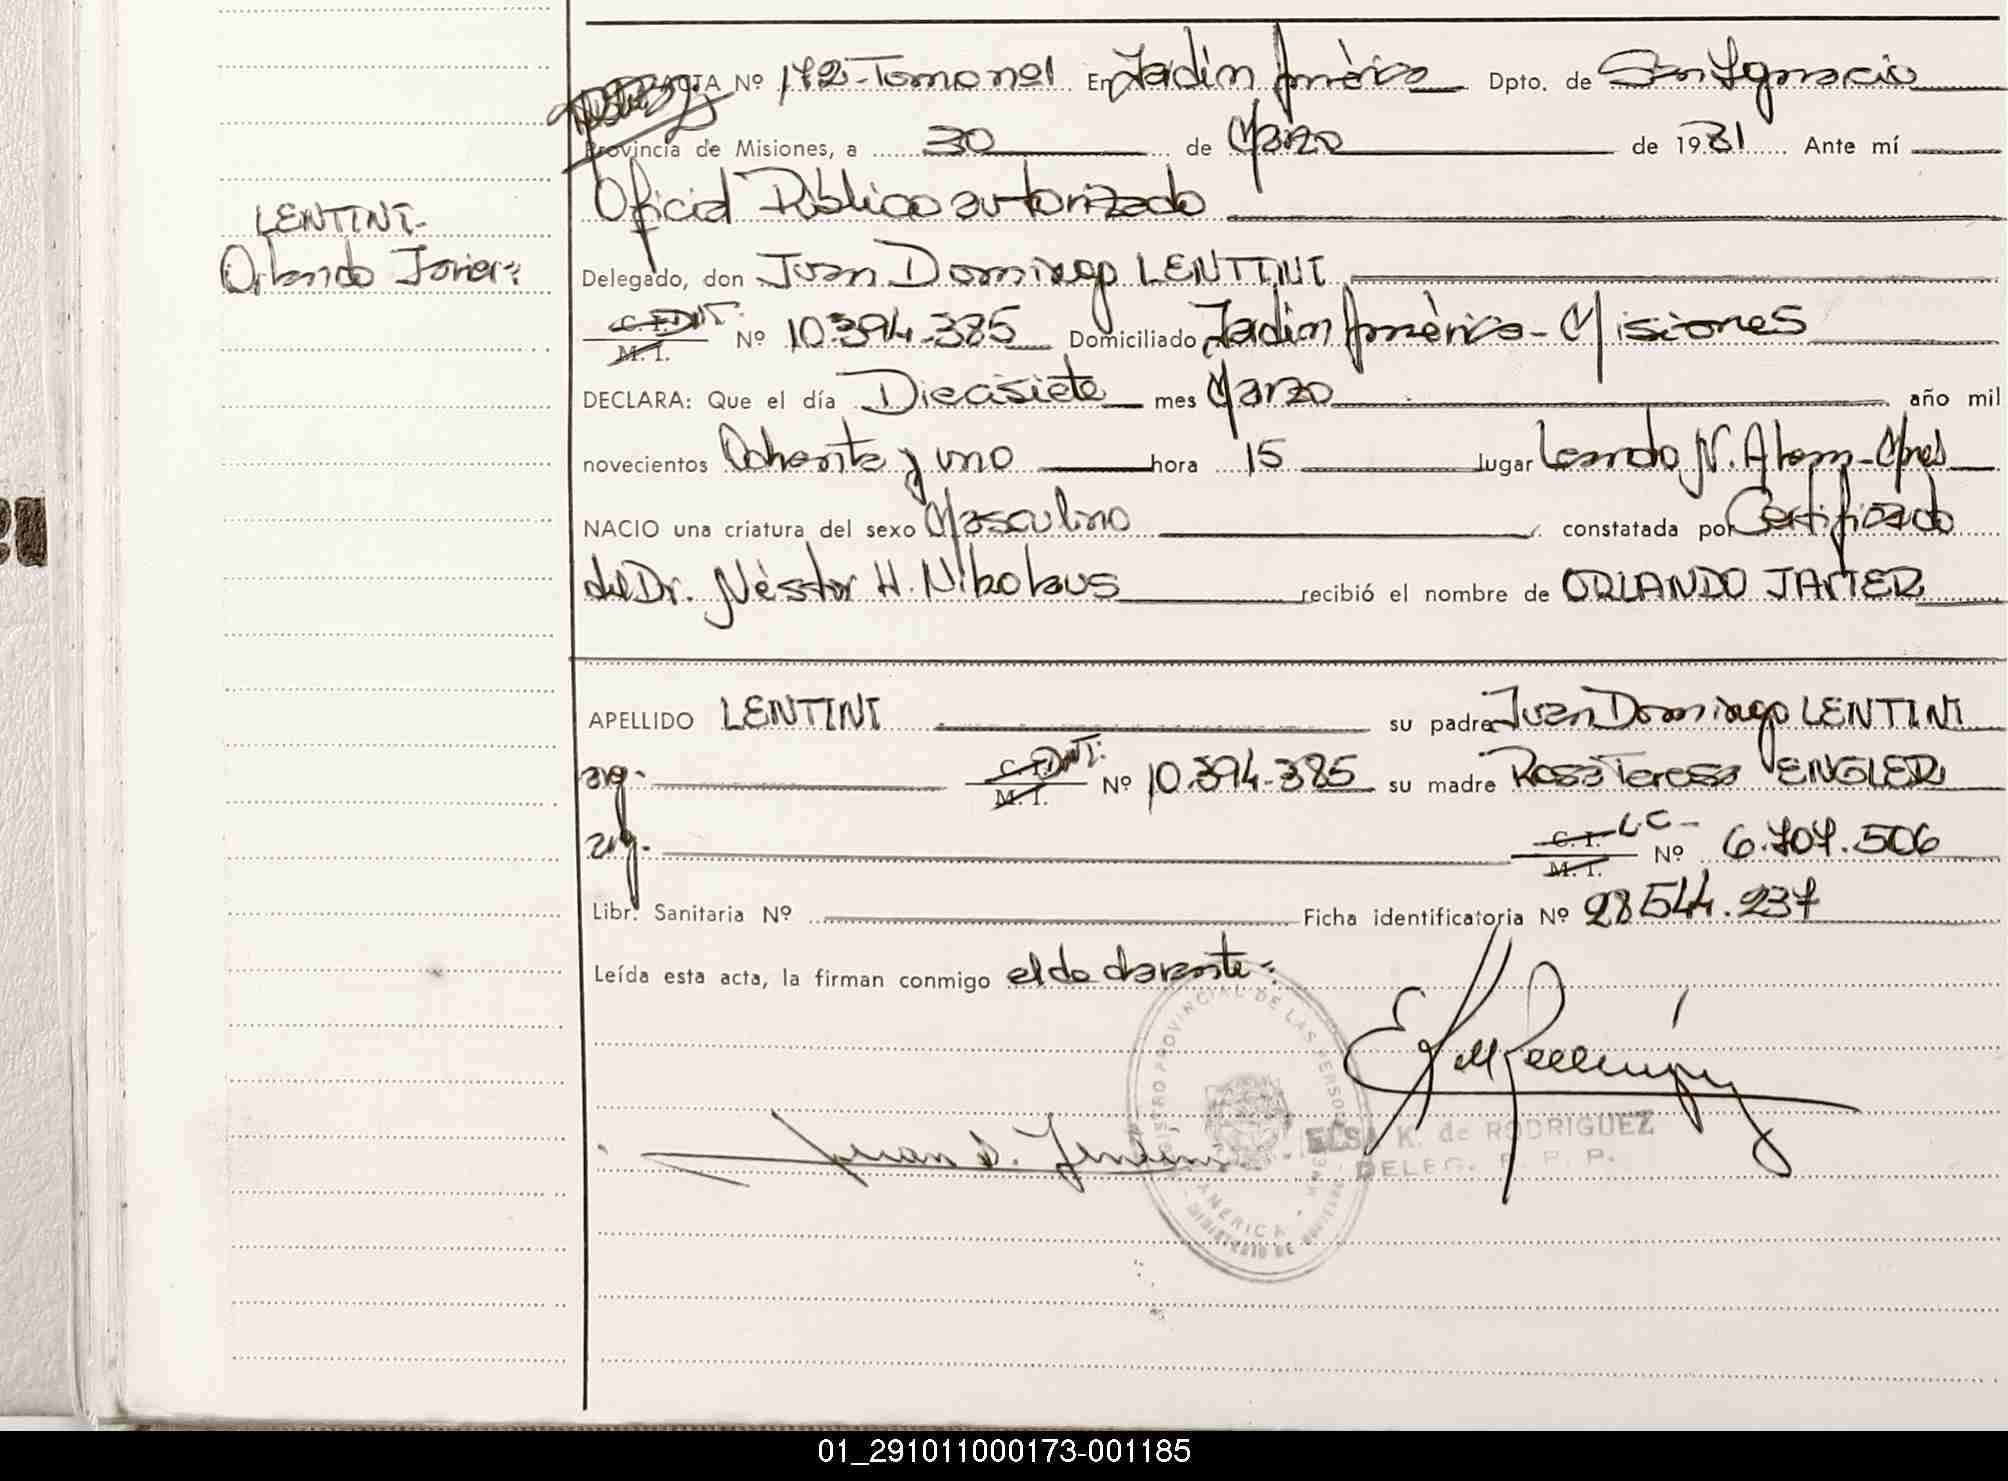 ACTA Nº 172-Tomo nº1 En Jadín América Dpto. de San Ignacio
Provincia de Misiones, a 30 de Marzo de 1981 Ante mí
Oficial Público autorizado
LENTINI-
Orlando Javier:
Delegado, don Juan Domingo LENTINI
C. I. DNI. M. I. Nº 10.394.385 Domiciliado Jadín América - Misiones
DECLARA: Que el día Diecisiete mes Marzo año mil
novecientos Ochenta y uno hora 15 lugar Leandro N. Alem-Mnes
NACIO una criatura del sexo Masculino constatada por Certificado
del Dr. Néstor H. Nikolaus recibió el nombre de ORLANDO JAVIER
APELLIDO LENTINI su padre Juan Domingo LENTINI
arg. C. I. DNI. M. I. Nº 10.394.385 su madre Rosa Teresa ENGLER
arg. C. I. L.C- M. I. Nº 6.707.506
Libr. Sanitaria Nº Ficha identificatoria Nº 28544.237
Leída esta acta, la firman conmigo el declarante:
REGISTRO PROVINCIAL DE LAS PERSONAS
AMERICA
MINISTERIO DE GOBIERNO
Juan D. Lentini
ELSA K. de RODRIGUEZ
DELEG. R. P. P.
01_291011000173-001185